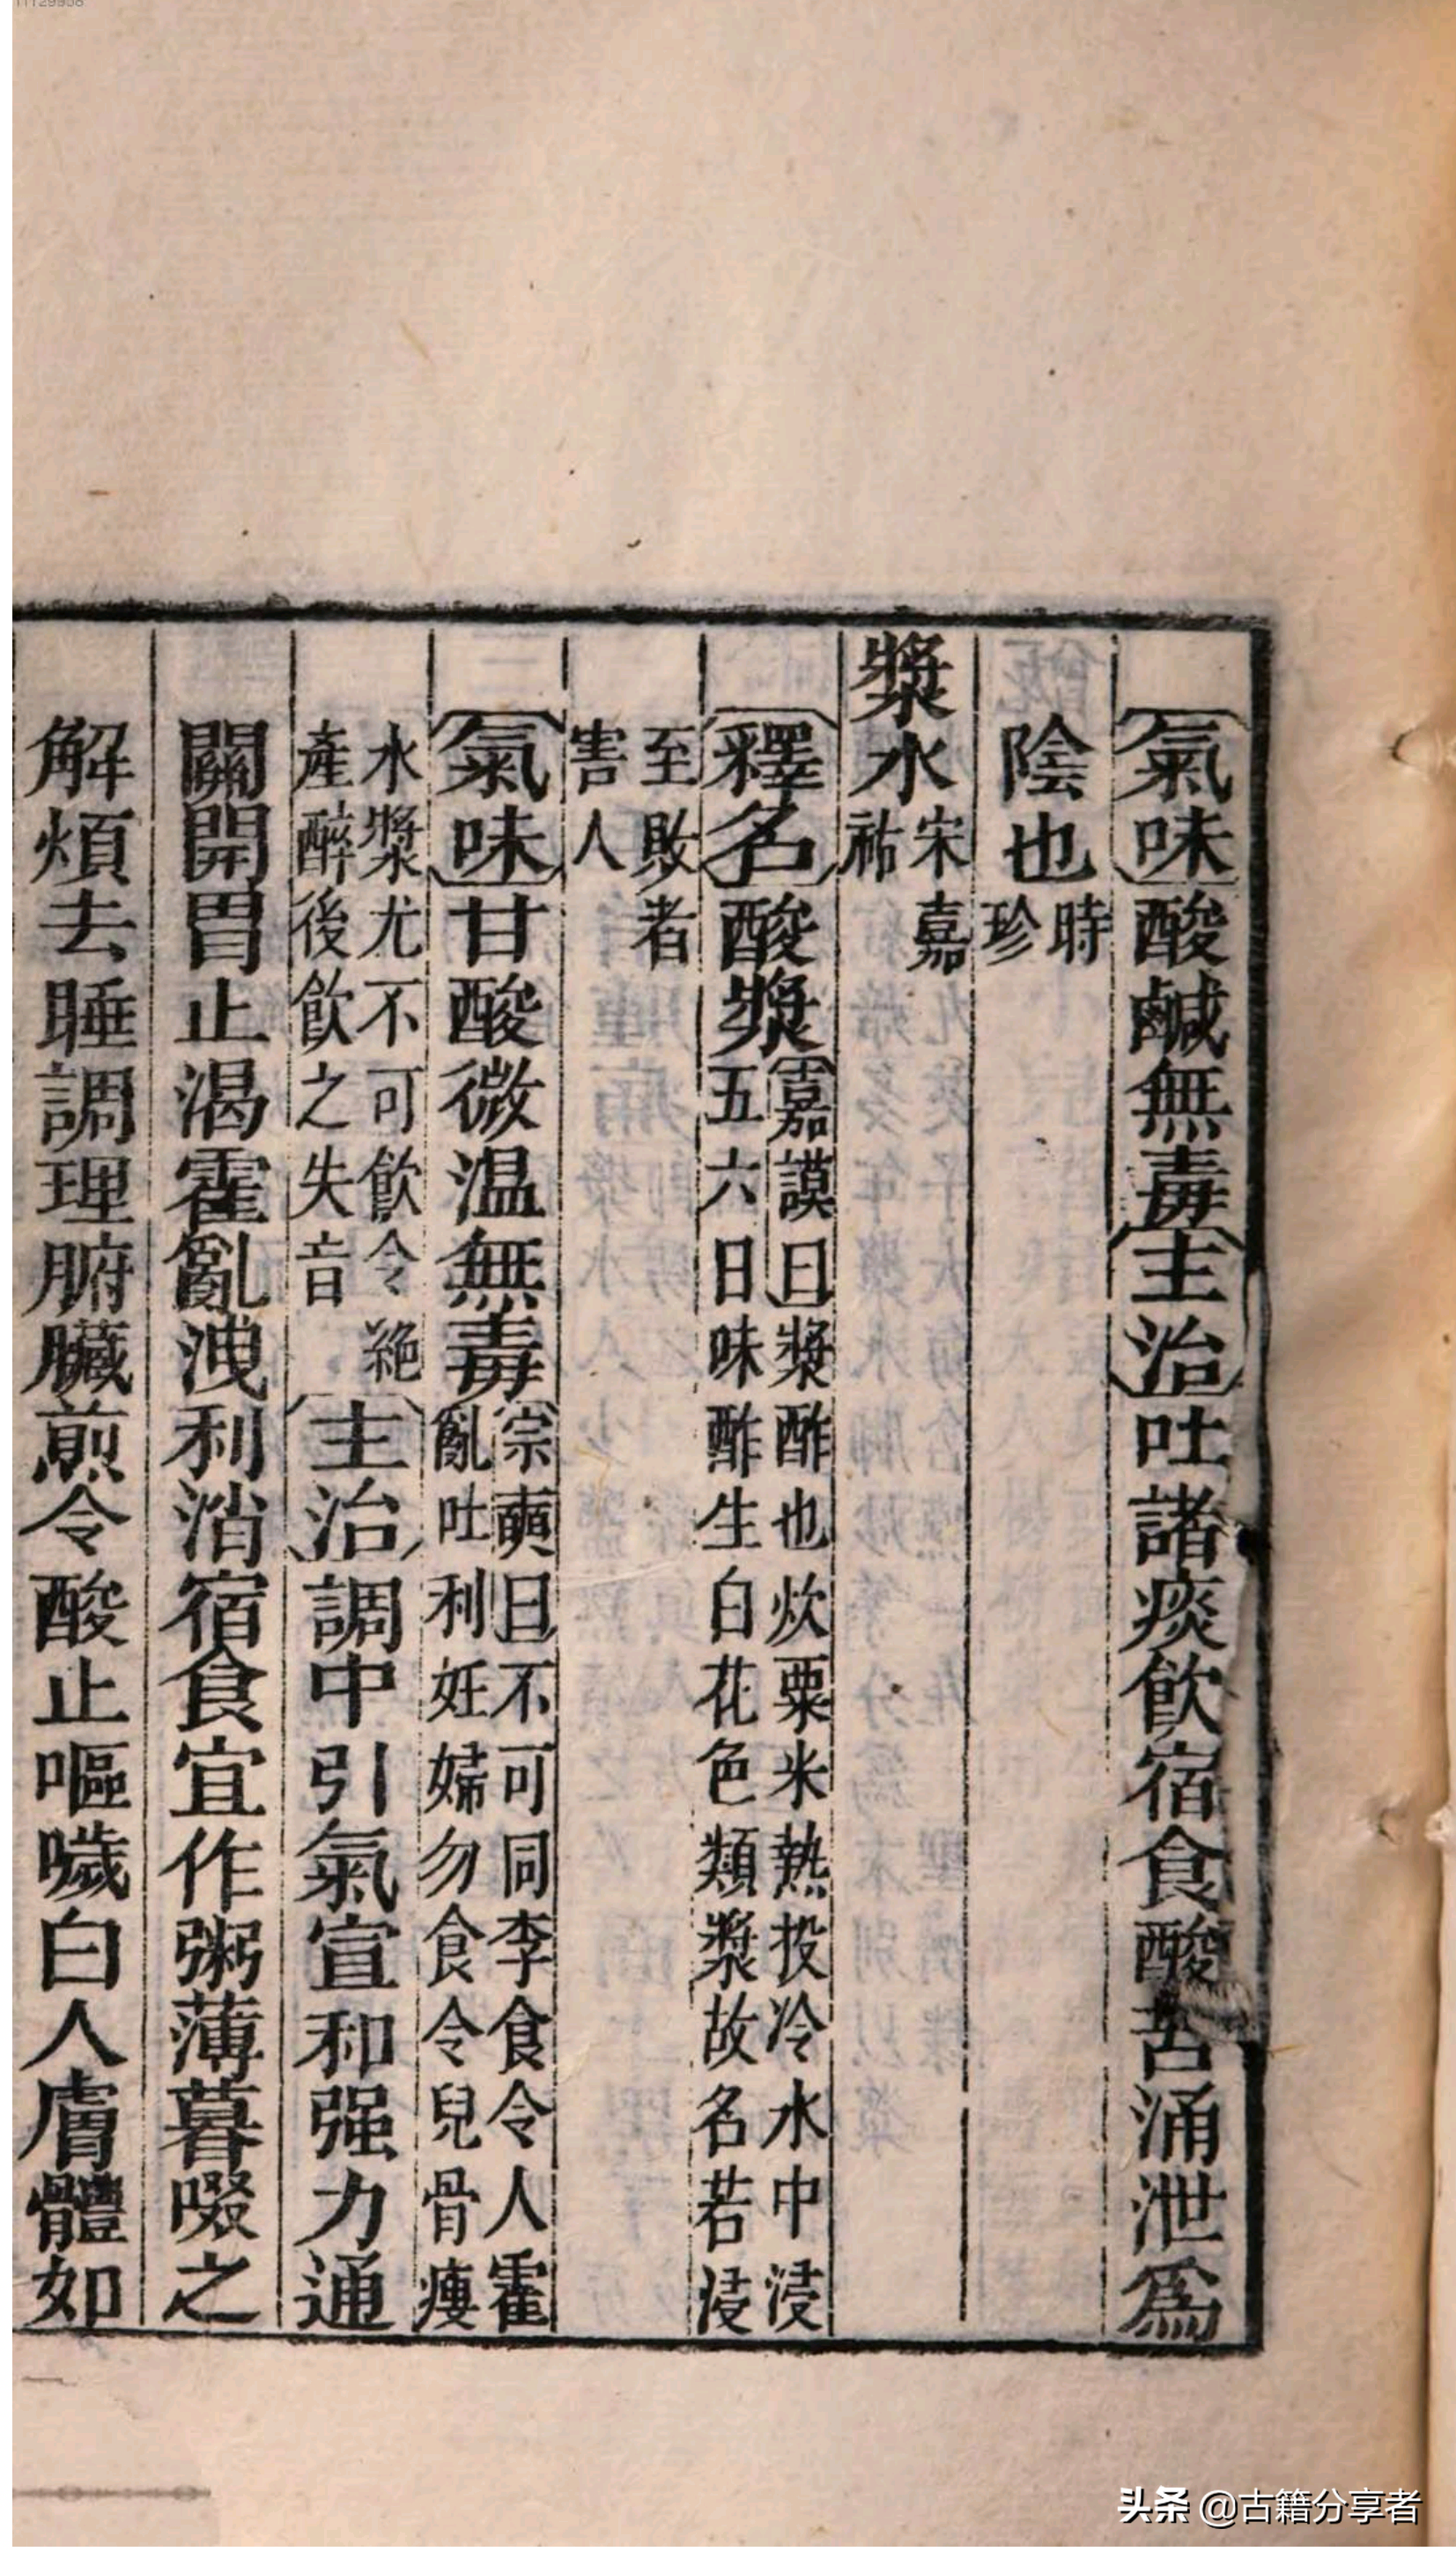 氣味酸鹹無毒主治吐諸痰飲宿食酸苦涌泄爲
陰也時珍
漿水宋嘉祐
釋名酸漿嘉謨曰漿酢也炊粟米熱投冷水中浸
五六日味酢生白花色類漿故名若浸
至敗者
害人
氣味甘酸微温無毒宗奭曰不可同李食令人霍
亂吐利妊婦勿食令兒骨瘦
水漿尤不可飲令絶
產醉後飲之失音
主治調中引氣宣和强力通
關開胃止渴霍亂洩利消宿食宜作粥薄暮啜之
解煩去睡調理腑臟煎令酸止嘔噦白人膚體如
头条 @古籍分享者